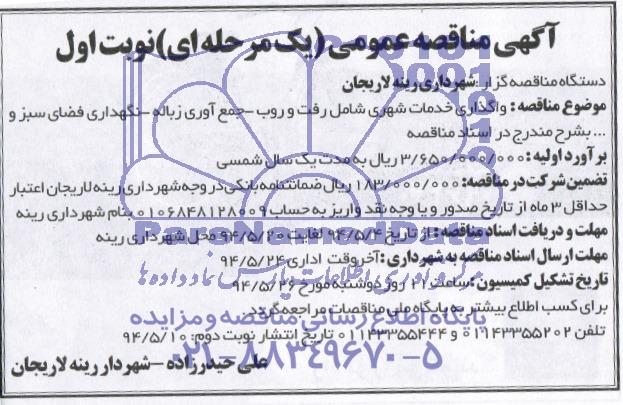 آگهی مناقصه عمومی (یک مرحله ای) نوبت اول
دستگاه مناقصه گزار: شهرداری رینه لاریجان
موضوع مناقصه: واگذاری خدمات شهری شامل رفت و روب - جمع آوری زباله - نگهداری فضای سبز و
... بشرح مندرج در اسناد مناقصه
برآورد اولیه: ۳/۶۵۰/۰۰۰/۰۰۰ ریال به مدت یک سال شمسی
تضمین شرکت در مناقصه: ۱۸۳/۰۰۰/۰۰۰ ریال ضمانتنامه بانکی در وجه شهرداری رینه لاریجان اعتبار
حداقل ۳ ماه از تاریخ صدور و یا وجه نقد واریز به حساب ۰۱۰۶۸۴۸۱۲۸۰۰۹ بنام شهرداری رینه
مهلت و دریافت اسناد مناقصه: از تاریخ ۹۴/۵/۴ لغایت ۹۴/۵/۲۰ محل شهرداری رینه
ParsNamadData
مهلت ارسال اسناد مناقصه به شهرداری: آخر وقت اداری ۹۴/۵/۲۴
مرکز فرآوری اطلاعات پارس نماد داده ها
تاریخ تشکیل کمیسیون: ساعت ۱۱ روز دوشنبه مورخ ۹۴/۵/۲۶
برای کسب اطلاع بیشتر به پایگاه ملی مناقصات مراجعه گردد.
پایگاه اطلاع رسانی مناقصه و مزایده
تلفن ۰۱۱۴۳۳۵۵۲۰۲ و ۰۱۱۴۳۳۵۵۴۴۴ تاریخ انتشار نوبت دوم: ۹۴/۵/۱۰
۰۲۱-۸۸۳۴۹۶۷۰-۵
علی حیدرزاده - شهردار رینه لاریجان